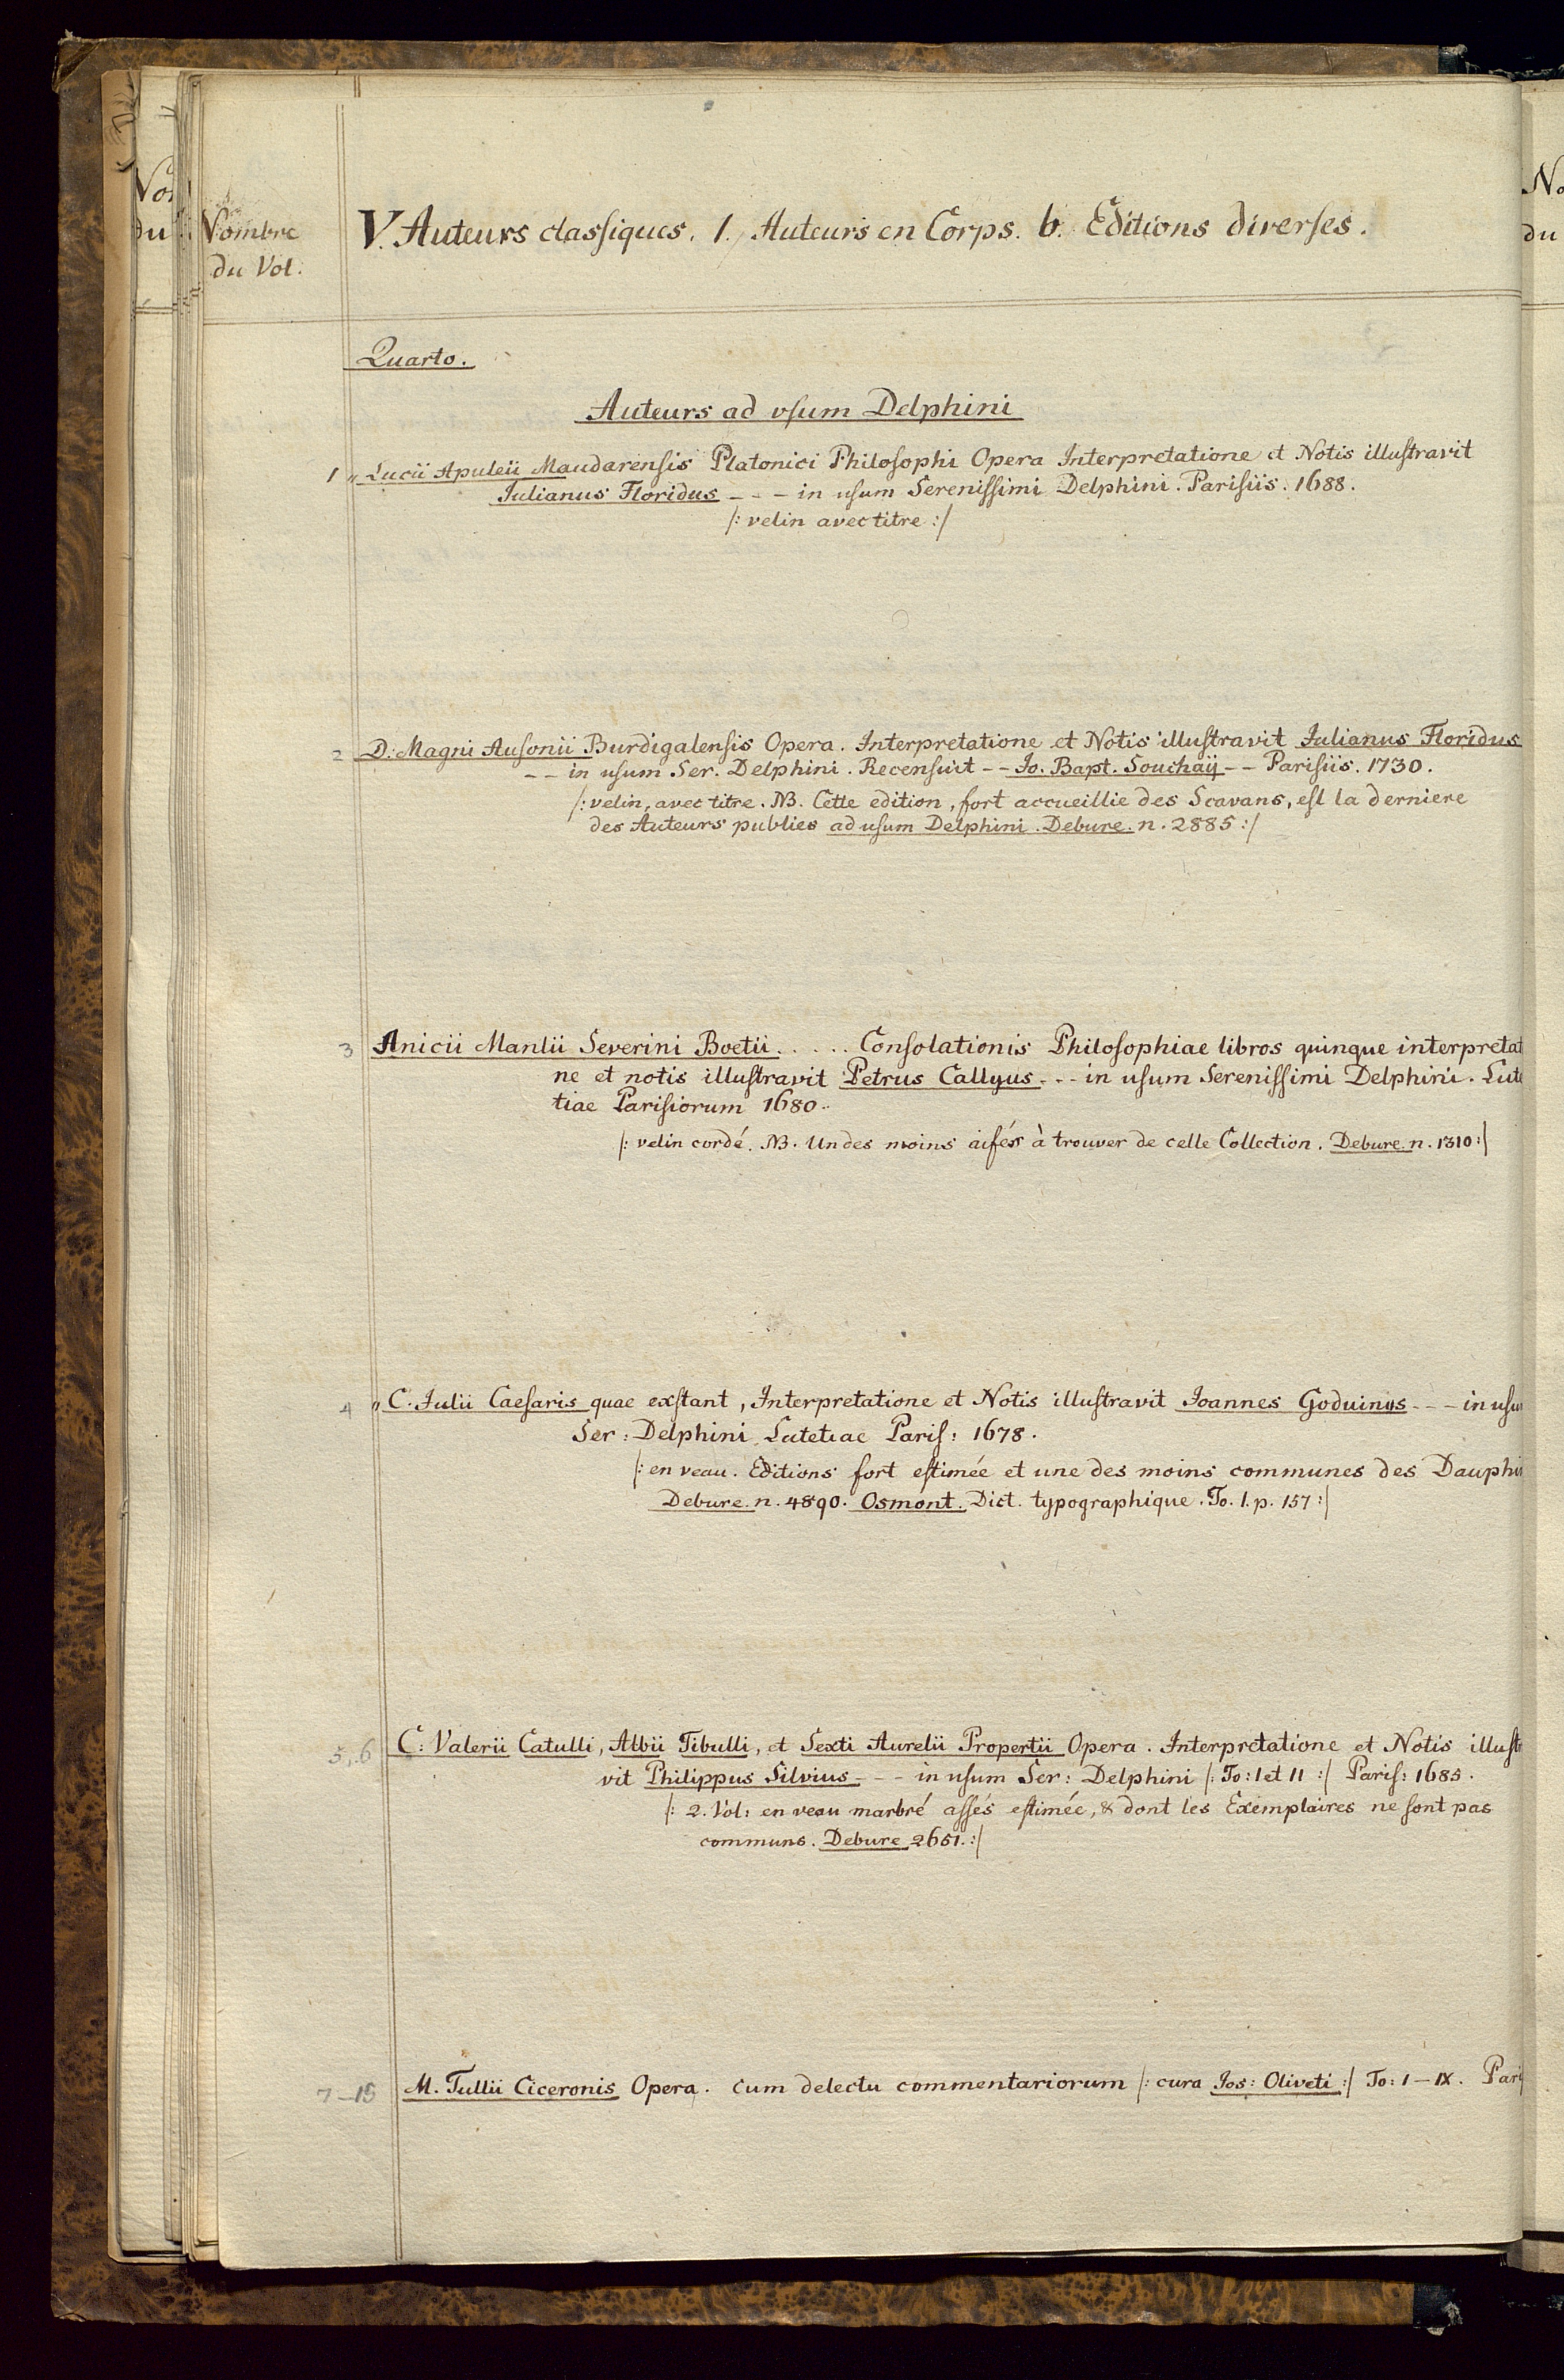 Nombre
du Vol.
V. Auteurs classiques. 1. Auteurs en Corps. b. Editions diverses.
Quarto.
Auteurs ad usum Delphini
1 „ Lucii Apuleii Maudarensis Platonici Philosophi Opera Interpretatione et Notis illustravit
Iulianus Floridus - - - in usum Serenissimi Delphini. Parisiis. 1688.
/: velin avec titre :/
2 D. Magni Ausonii Burdigalensis Opera. Interpretatione et Notis illustravit Iulianus Floridus
- - in usum Ser. Delphini. Recensuit - - Jo. Bapt. Souchaÿ - - Parisiis. 1730.
/: velin, avec titre. NB. Cette edition, fort accueillie des Scavans, est la derniere
des Auteurs publies ad usum Delphini. Debure. n. 2885 :/
3 Anicii Manlii Severini Boetii . . . . . Consolationis Philosophiae libros quinque interpretat
ne et notis illustravit Petrus Callyus - - - in usum Serenissimi Delphini. Lute
tiae Parisiorum 1680.
/: velin cordé. NB. Un des moins aisés à trouver de celle Collection. Debure. n. 1310 :/
4 „ C. Iulii Caesaris quae exstant, Interpretatione et Notis illustravit Joannes Goduinus - - - in usu
Ser: Delphini Lutetiae Paris: 1678.
/: en veau. Editions fort estimée et une des moins communes des Dauphin
Debure. n. 4890. Osmont. Dict. typographique. To. 1. p. 157 :/
5, 6 C: Valerii Catulli, Albii Tibulli, et Sexti Aurelii Propertii Opera. Interpretatione et Notis illust
vit Philippus Silvius - - - in usum Ser: Delphini /: To: I et II :/ Paris: 1685.
/: 2. Vol: en veau marbré assés estimée, & dont les Exemplaires ne sont pas
communs. Debure 2651. :/
7-15 M. Tullii Ciceronis Opera. cum delectu commentariorum /: cura Jos: Oliveti :/ To: I - IX. Paris
No
du